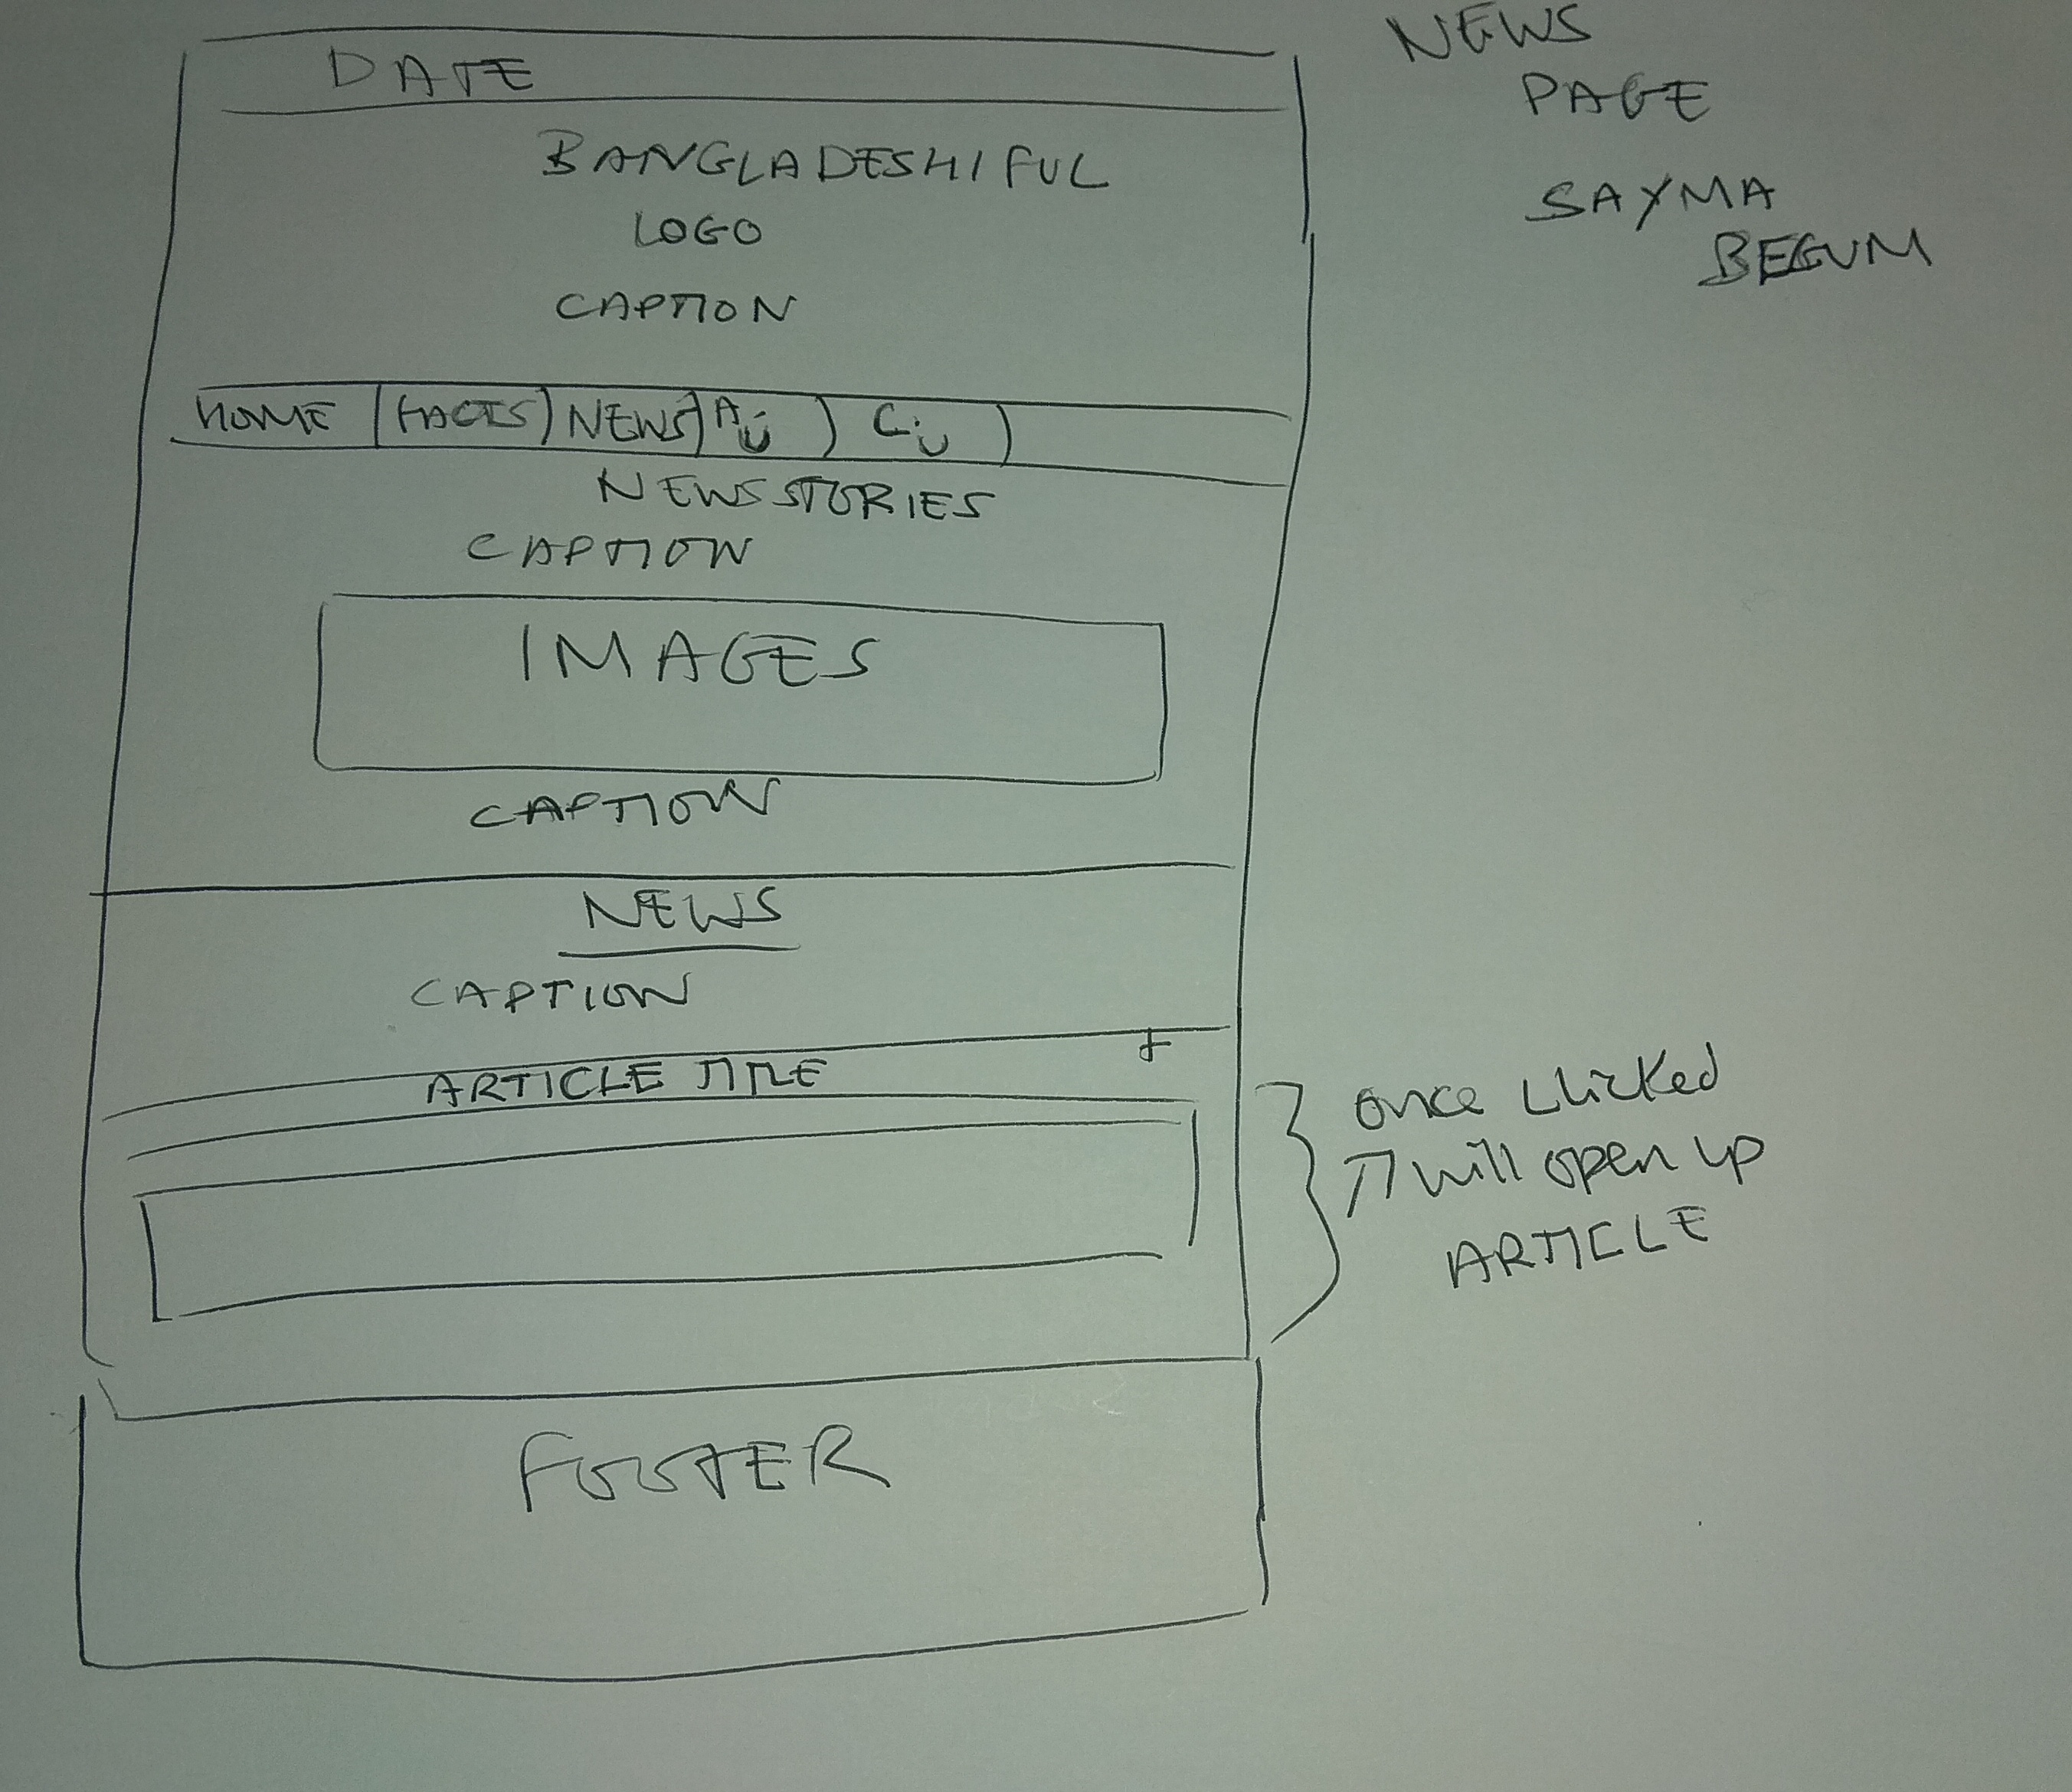 NEWS
PAGE
SAYMA
BEGUM
DATE
BANGLADESHIFUL
LOGO
CAPTION
HOME FACTS NEWS AU CU
NEWS STORIES
CAPTION
IMAGES
CAPTION
NEWS
CAPTION
+
ARTICLE TITLE
once clicked
IT will open up
ARTICLE
FOOTER